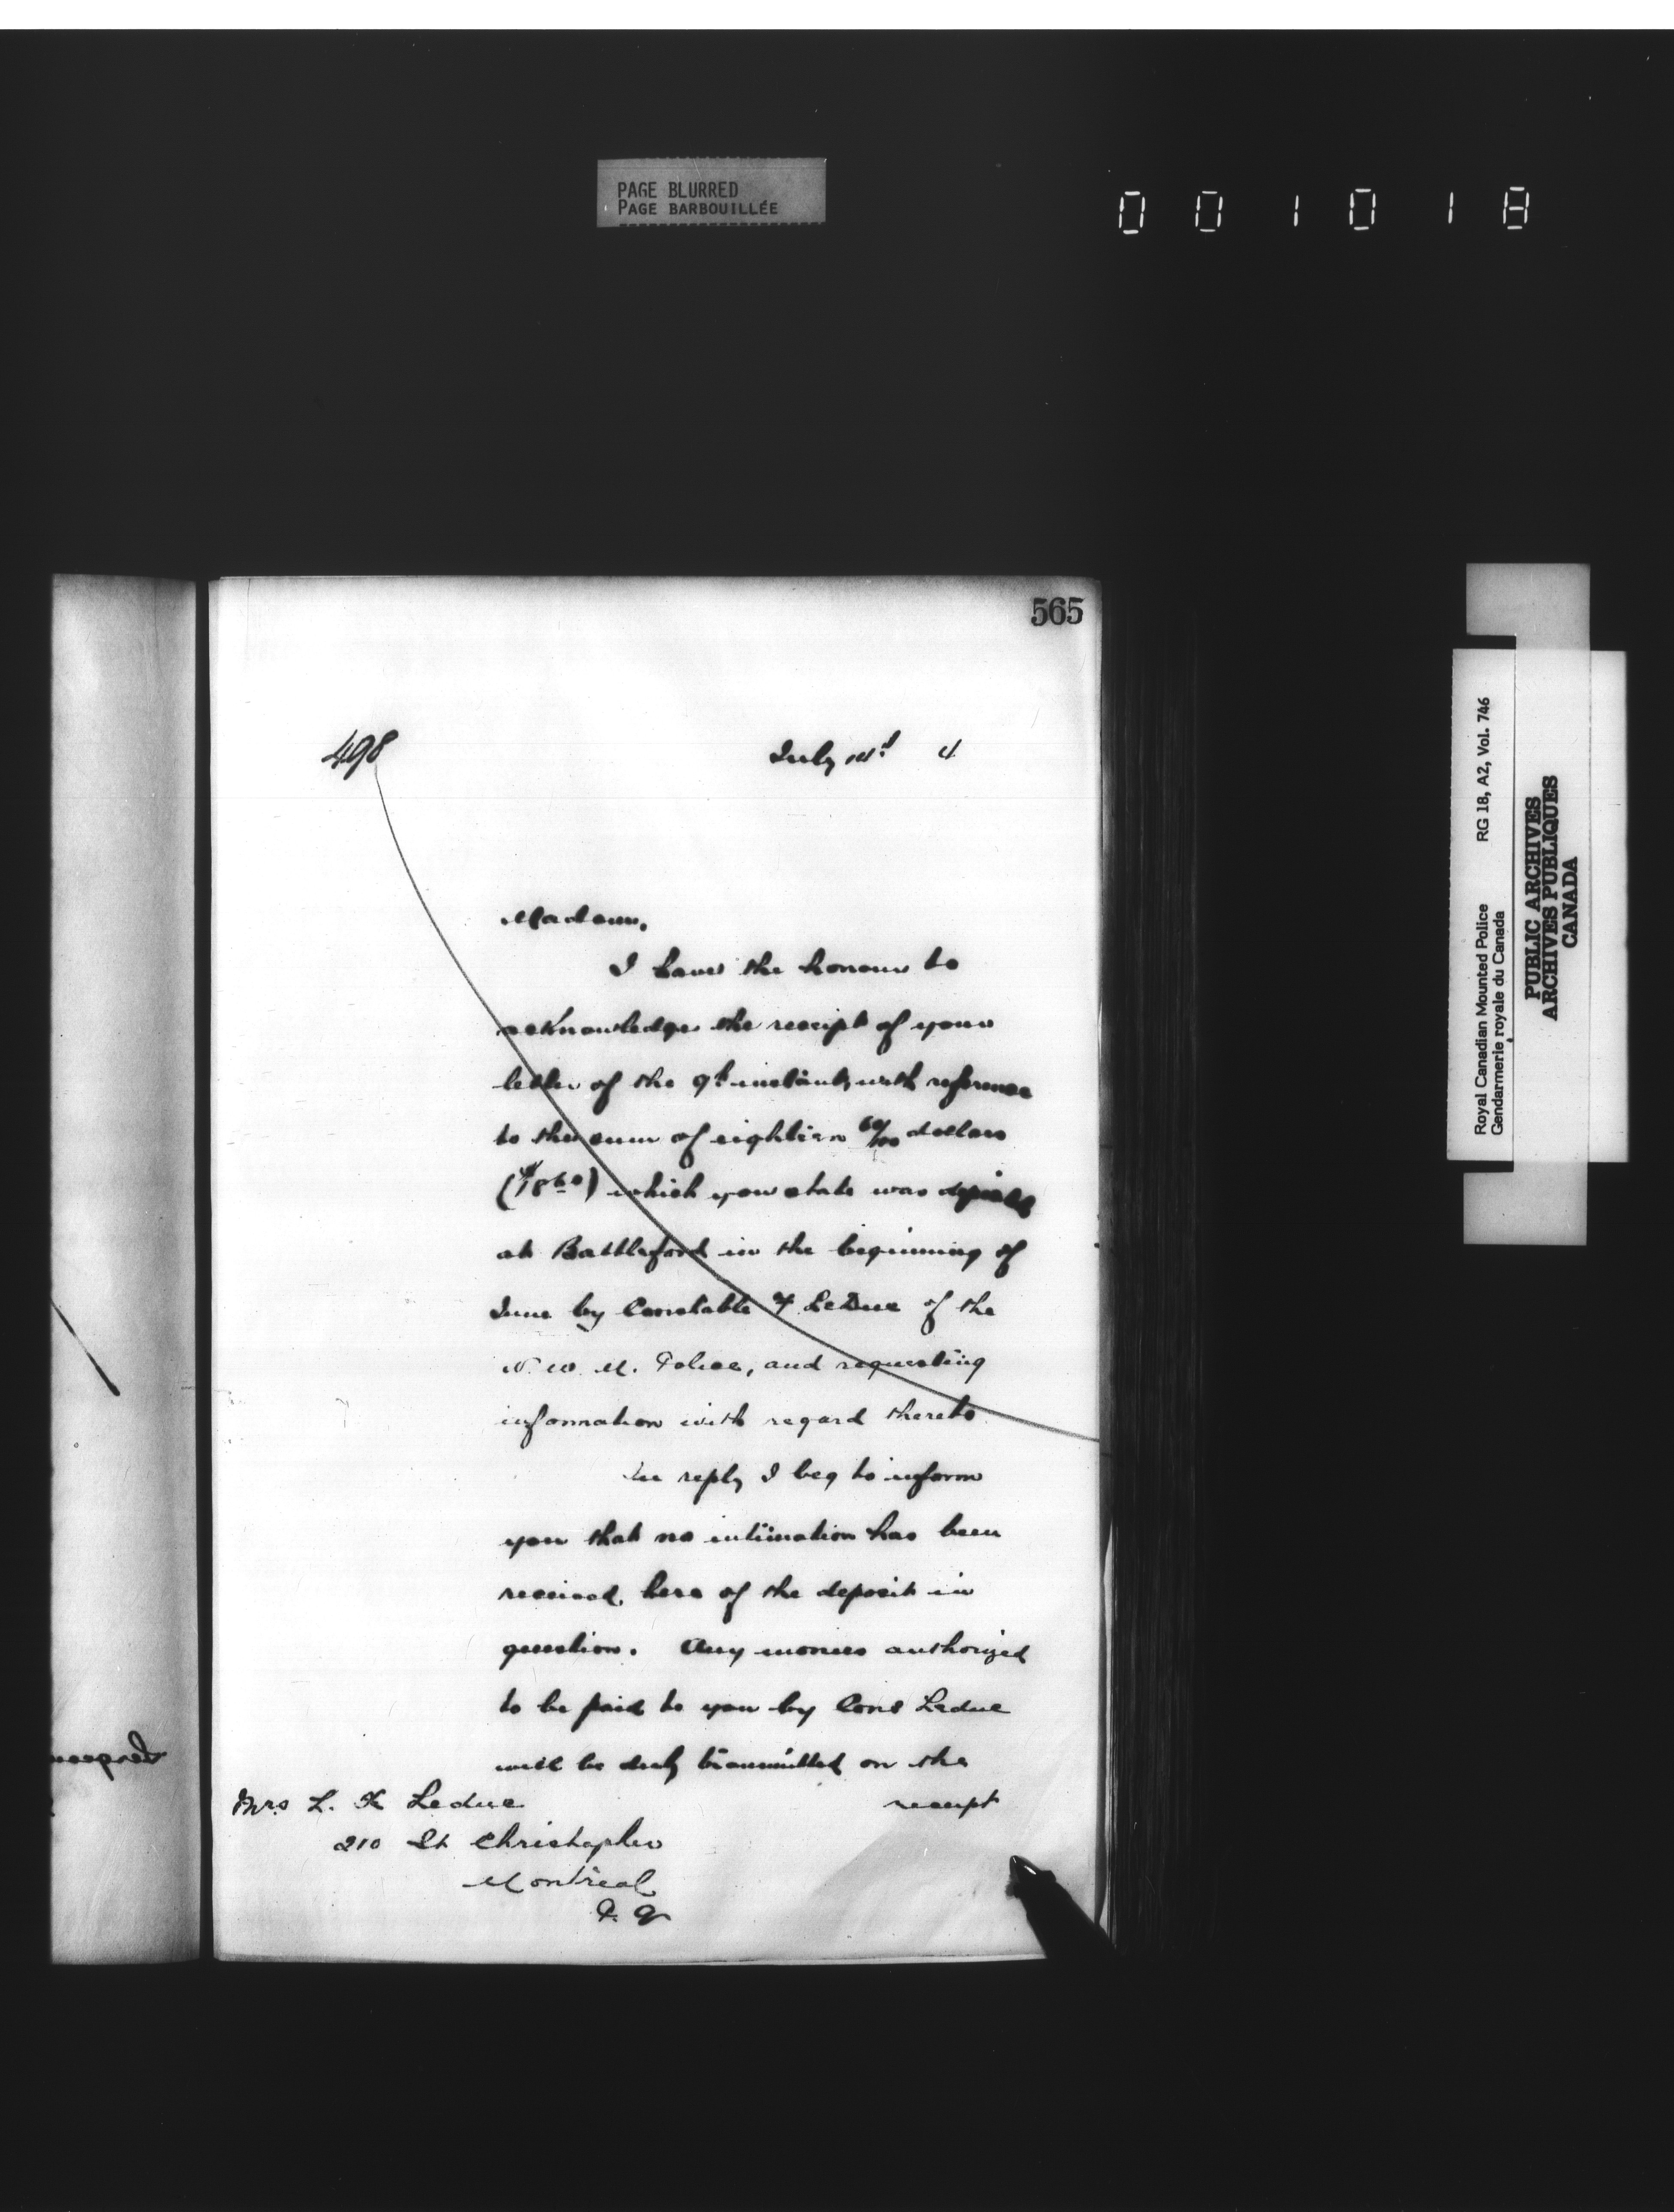 PAGE BLURRED
PAGE BARBOUILLÉE
001018
565
498
July 14th 4
Madam,
I have the honour to
acknowledge the receipt of your
letter of the 9th instant, with reference
to the sum of eighteen 60/100 dollars
($18.60) which you state was
at Battleford in the beginning of
June by Constable F LeDuc of the
N. W. M. Police, and requesting
information with regard thereto
In reply I beg to inform
you that no intimation has been
received, here of the deposit in
question. Any monies authorized
to be paid to you by Cons Leduc
will be duly transmitted on the
receipt
Mrs L. H Leduc
210 St Christopher
Montreal
P. Q
Royal Canadian Mounted Police
Gendarmerie royale du Canada
RG 18, A2, Vol. 746
PUBLIC ARCHIVES
ARCHIVES PUBLIQUES
CANADA